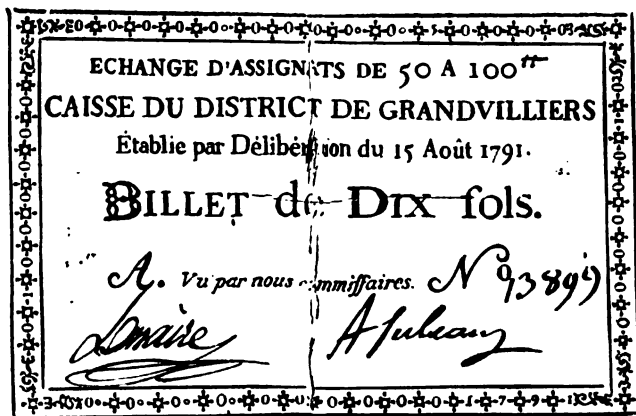 ECHANGE D'ASSIGNATS DE 50 A 100 ᵗᵗ
CAISSE DU DISTRICT DE GRANDVILLIERS
Établie par Délibération du 15 Août 1791.
BILLET de DIX ſols.
A. Vu par nous commiſſaires. No
Lemaire